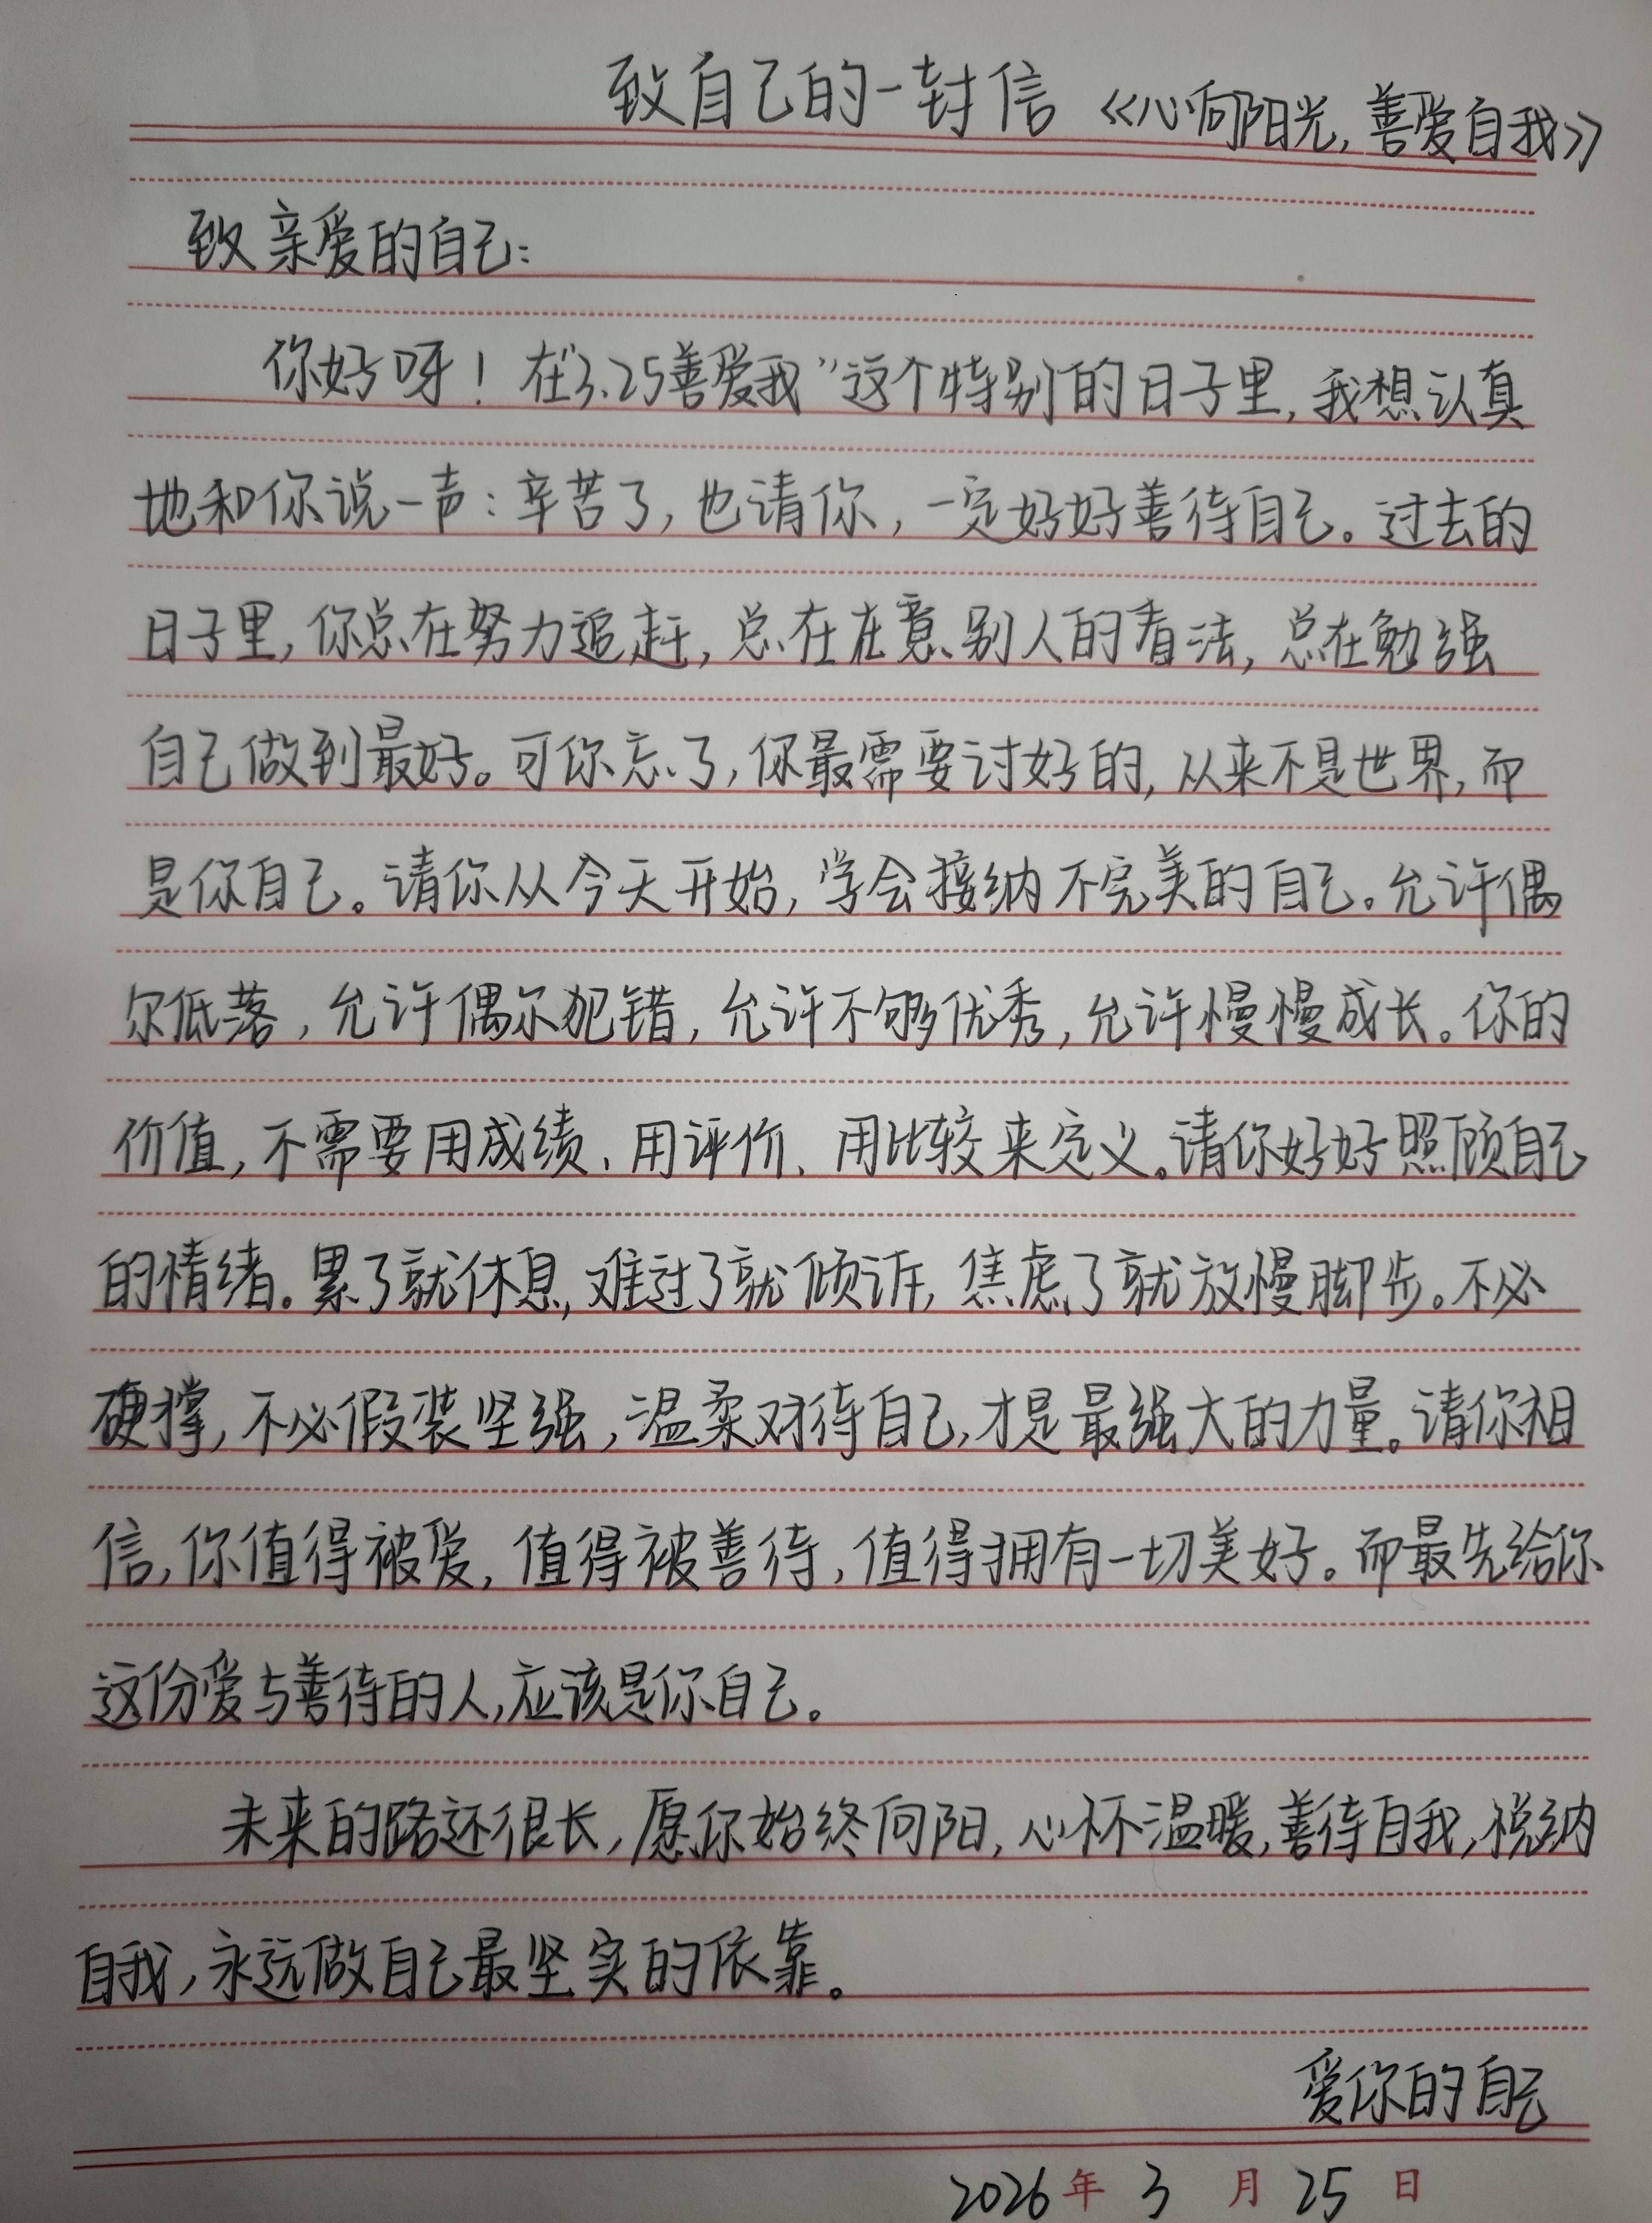 致自己的一封信 《心向阳光,善爱自我》
致亲爱的自己:
你好呀!在"3.25善爱我"这个特别的日子里,我想认真
地和你说一声:辛苦了,也请你,一定好好善待自己。过去的
日子里,你总在努力追赶,总在在意别人的看法,总在勉强
自己做到最好。可你忘了,你最需要讨好的,从来不是世界,而
是你自己。请你从今天开始,学会接纳不完美的自己。允许偶
尔低落,允许偶尔犯错,允许不够优秀,允许慢慢成长。你的
价值,不需要用成绩、用评价、用比较来定义。请你好好照顾自己
的情绪。累了就休息,难过了就倾诉,焦虑了就放慢脚步。不必
硬撑,不必假装坚强,温柔对待自己,才是最强大的力量。请你相
信,你值得被爱,值得被善待,值得拥有一切美好。而最先给你
这份爱与善待的人,应该是你自己。
未来的路还很长,愿你始终向阳,心怀温暖,善待自我,悦纳
自我,永远做自己最坚实的依靠。
爱你的自己
2026年3月25日